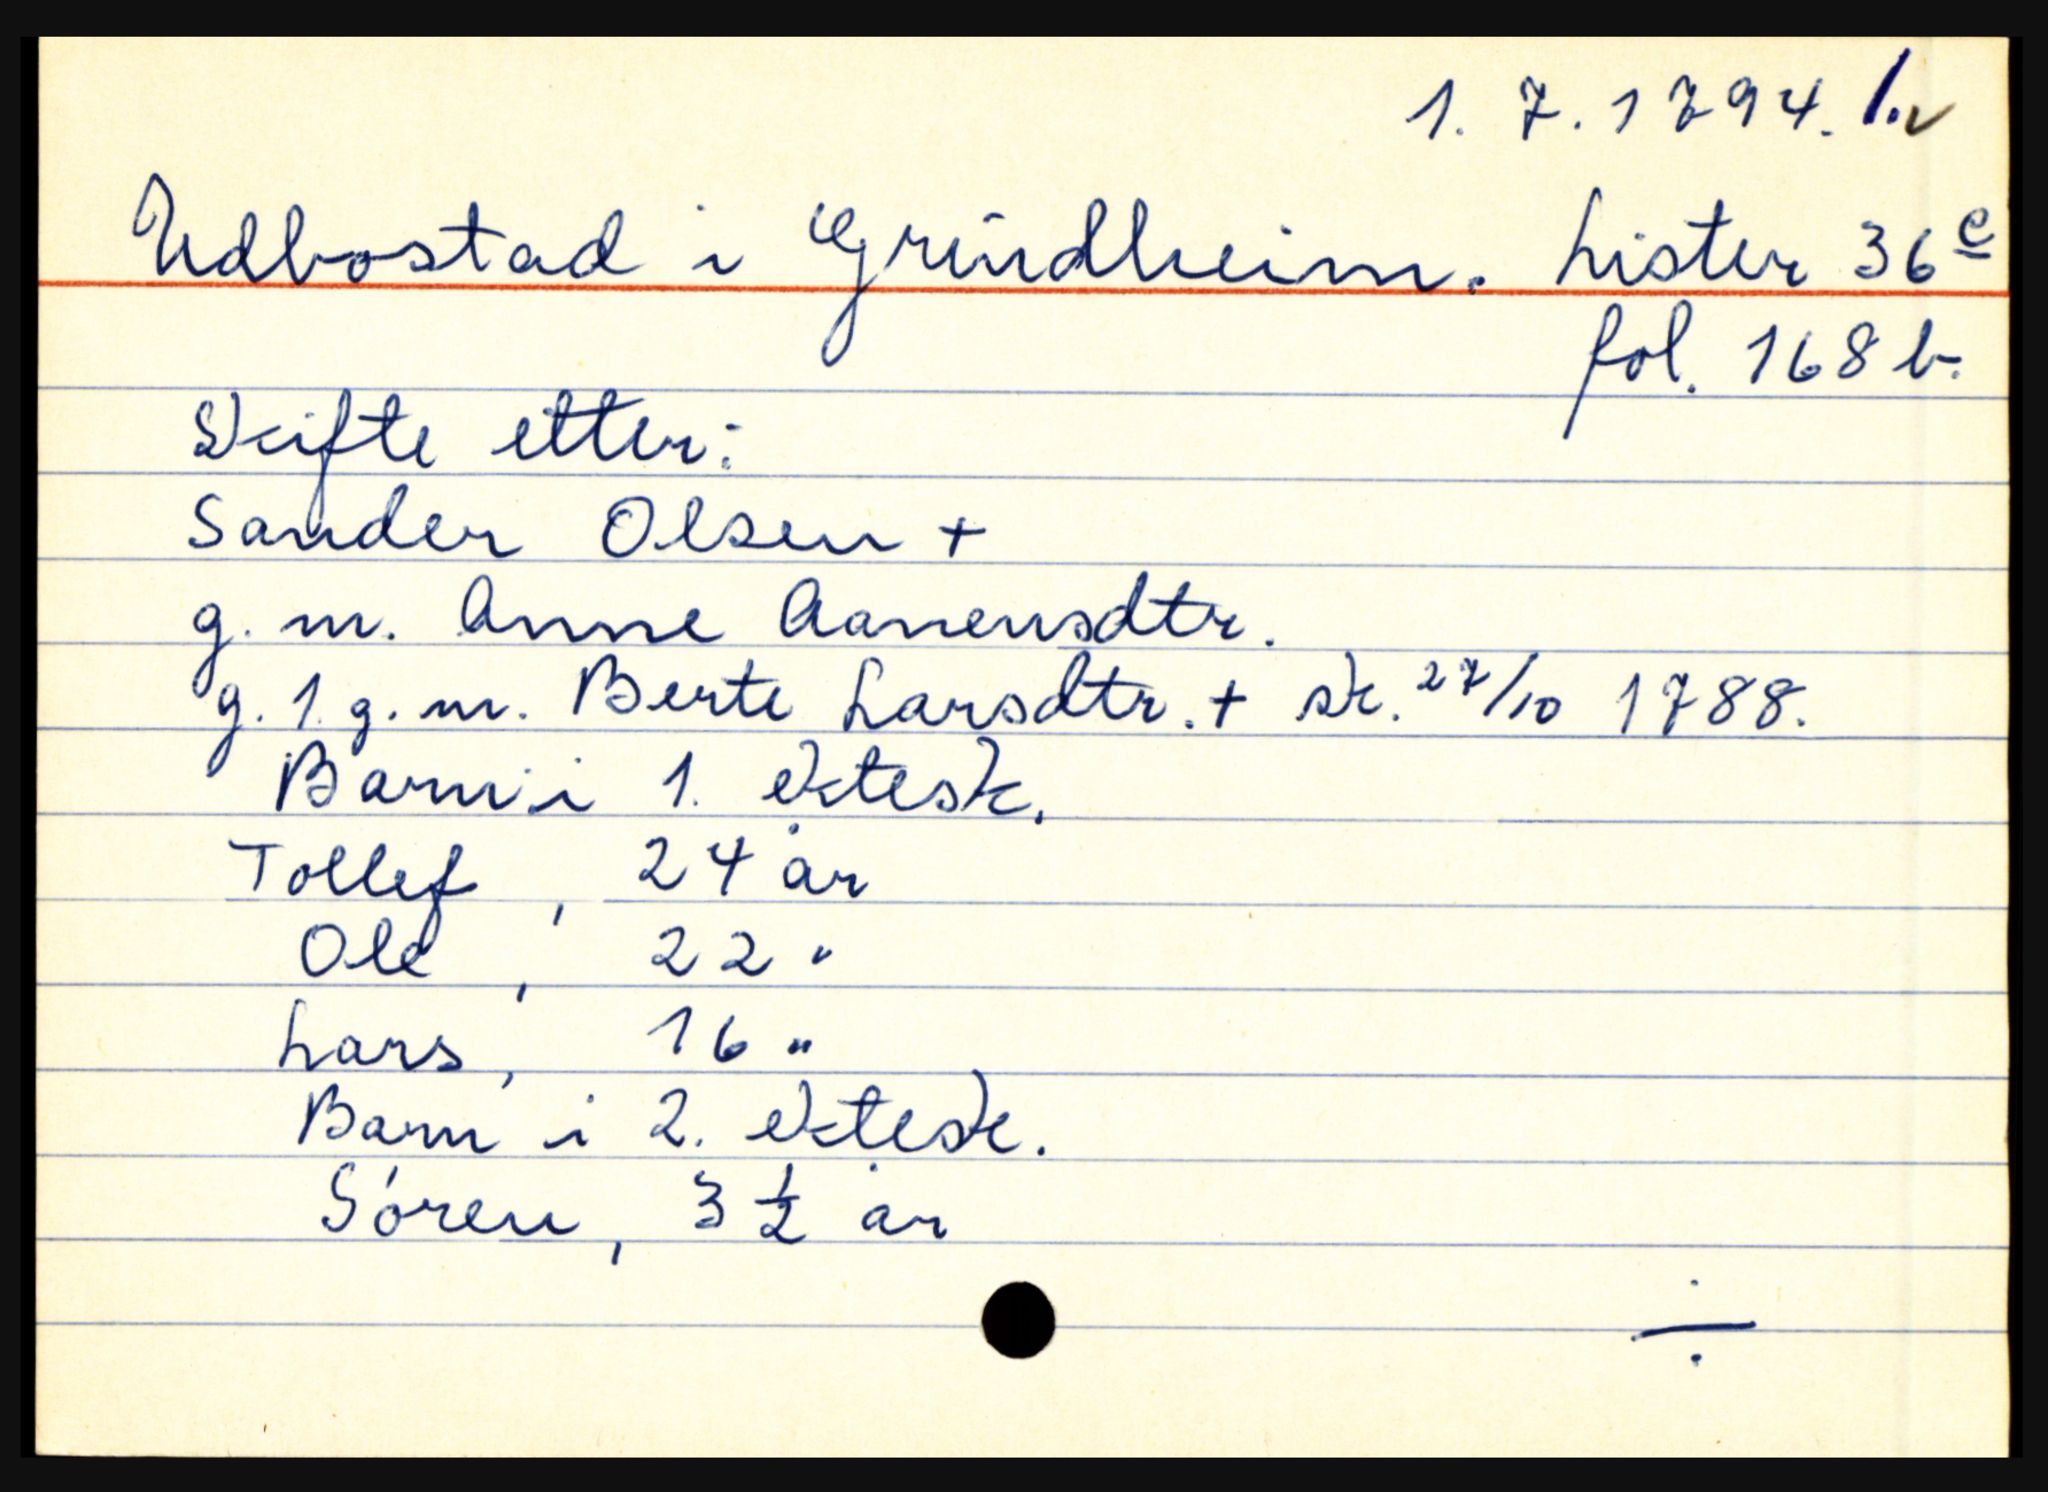 1. 7. 1794. /. v
Udbostad i Grindheim. Lister 36 c
fol. 168 b.
Skifte etter:
Sander Olsen +
g. m. Anne Aanensdtr.
g. 1. g. m. Berte Larsdtr. + sk. 27/10 1788.
Barn i 1. ektesk.
Tollef, 24 år
Ole, 22 "
Lars, 16 "
Barn i 2. ektesk.
Sóren, 3 1/2 år
÷